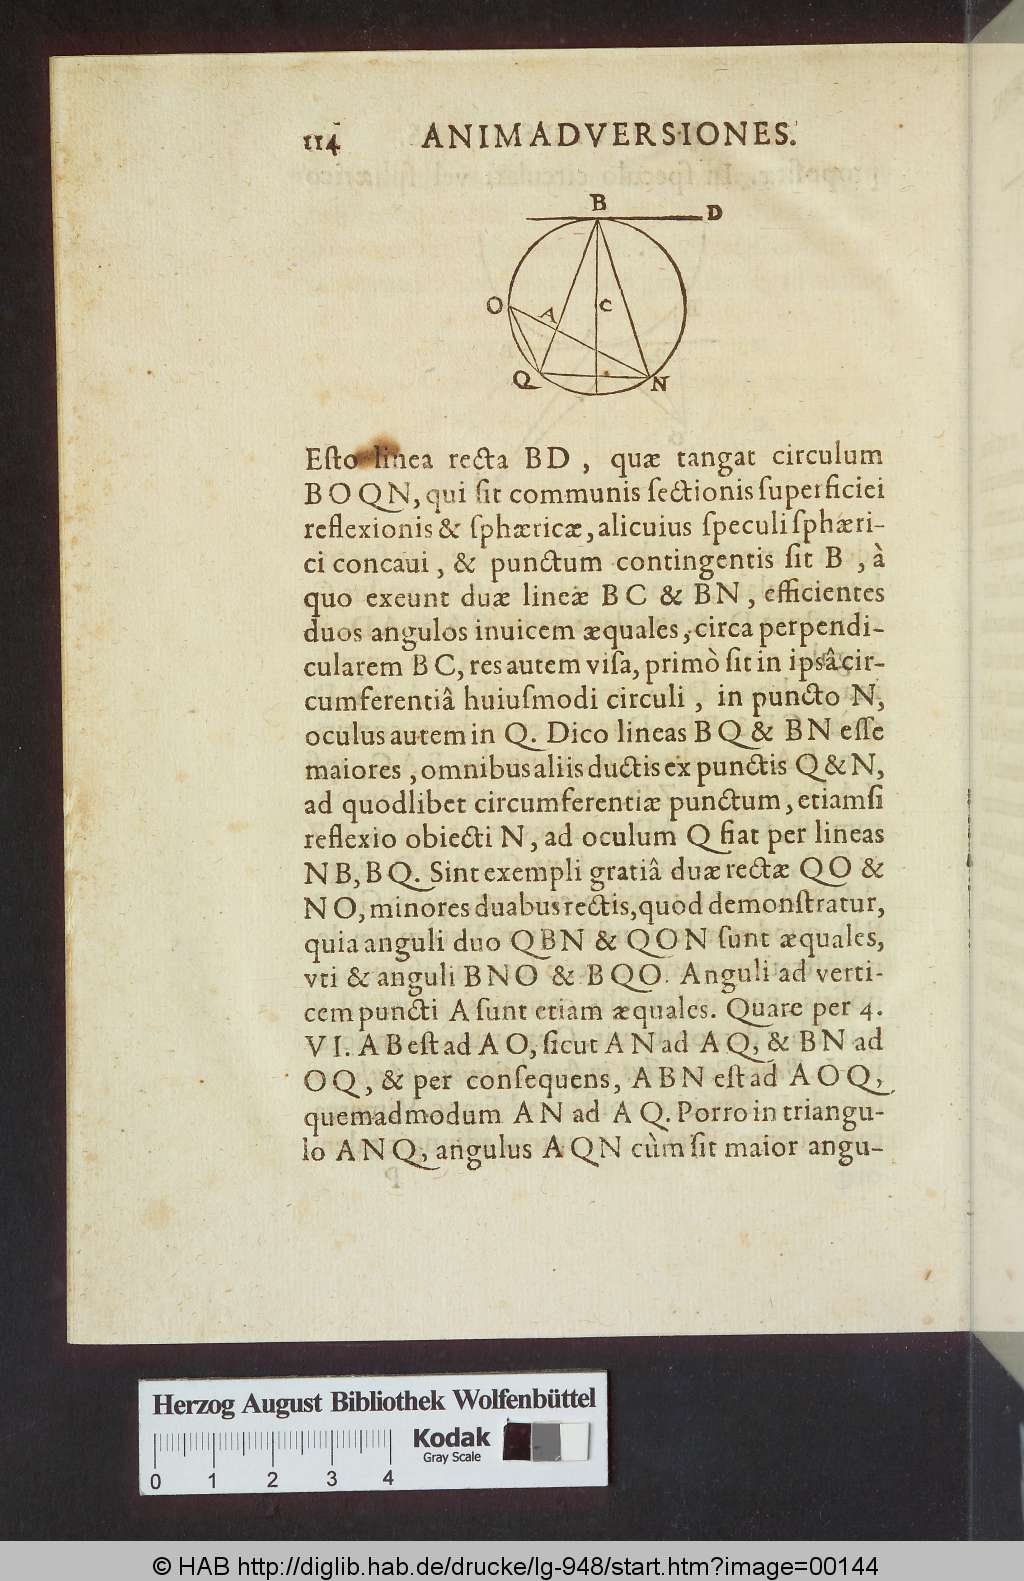 114 ANIMADVERSIONES.
B
D
O
A
C
Q
N
Eſto linea recta BD , quæ tangat circulum
BOQN, qui ſit communis ſectionis ſuperficiei
reflexionis & ſphæricæ, alicuius ſpeculi ſphæri-
ci concaui , & punctum contingentis ſit B , à
quo exeunt duæ lineæ BC & BN , efficientes
duos angulos inuicem æquales, circa perpendi-
cularem BC, res autem viſa, primò ſit in ipsâ cir-
cumferentiâ huiuſmodi circuli , in puncto N,
oculus autem in Q. Dico lineas BQ & BN eſſe
maiores , omnibus aliis ductis ex punctis Q & N,
ad quodlibet circumferentiæ punctum , etiamſi
reflexio obiecti N, ad oculum Q fiat per lineas
NB, BQ. Sint exempli gratiâ duæ rectæ QO &
NO, minores duabus rectis, quod demonſtratur,
quia anguli duo QBN & QON ſunt æquales,
vti & anguli BNO & BQO. Anguli ad verti-
cem puncti A ſunt etiam æquales. Quare per 4.
VI. AB eſt ad AO, ſicut AN ad AQ, & BN ad
OQ, & per conſequens, ABN eſt ad AOQ,
quemadmodum AN ad AQ. Porro in triangu-
lo ANQ, angulus AQN cùm ſit maior angu-
Herzog August Bibliothek Wolfenbüttel
Kodak
Gray Scale
0 1 2 3 4
© HAB http://diglib.hab.de/drucke/lg-948/start.htm?image=00144